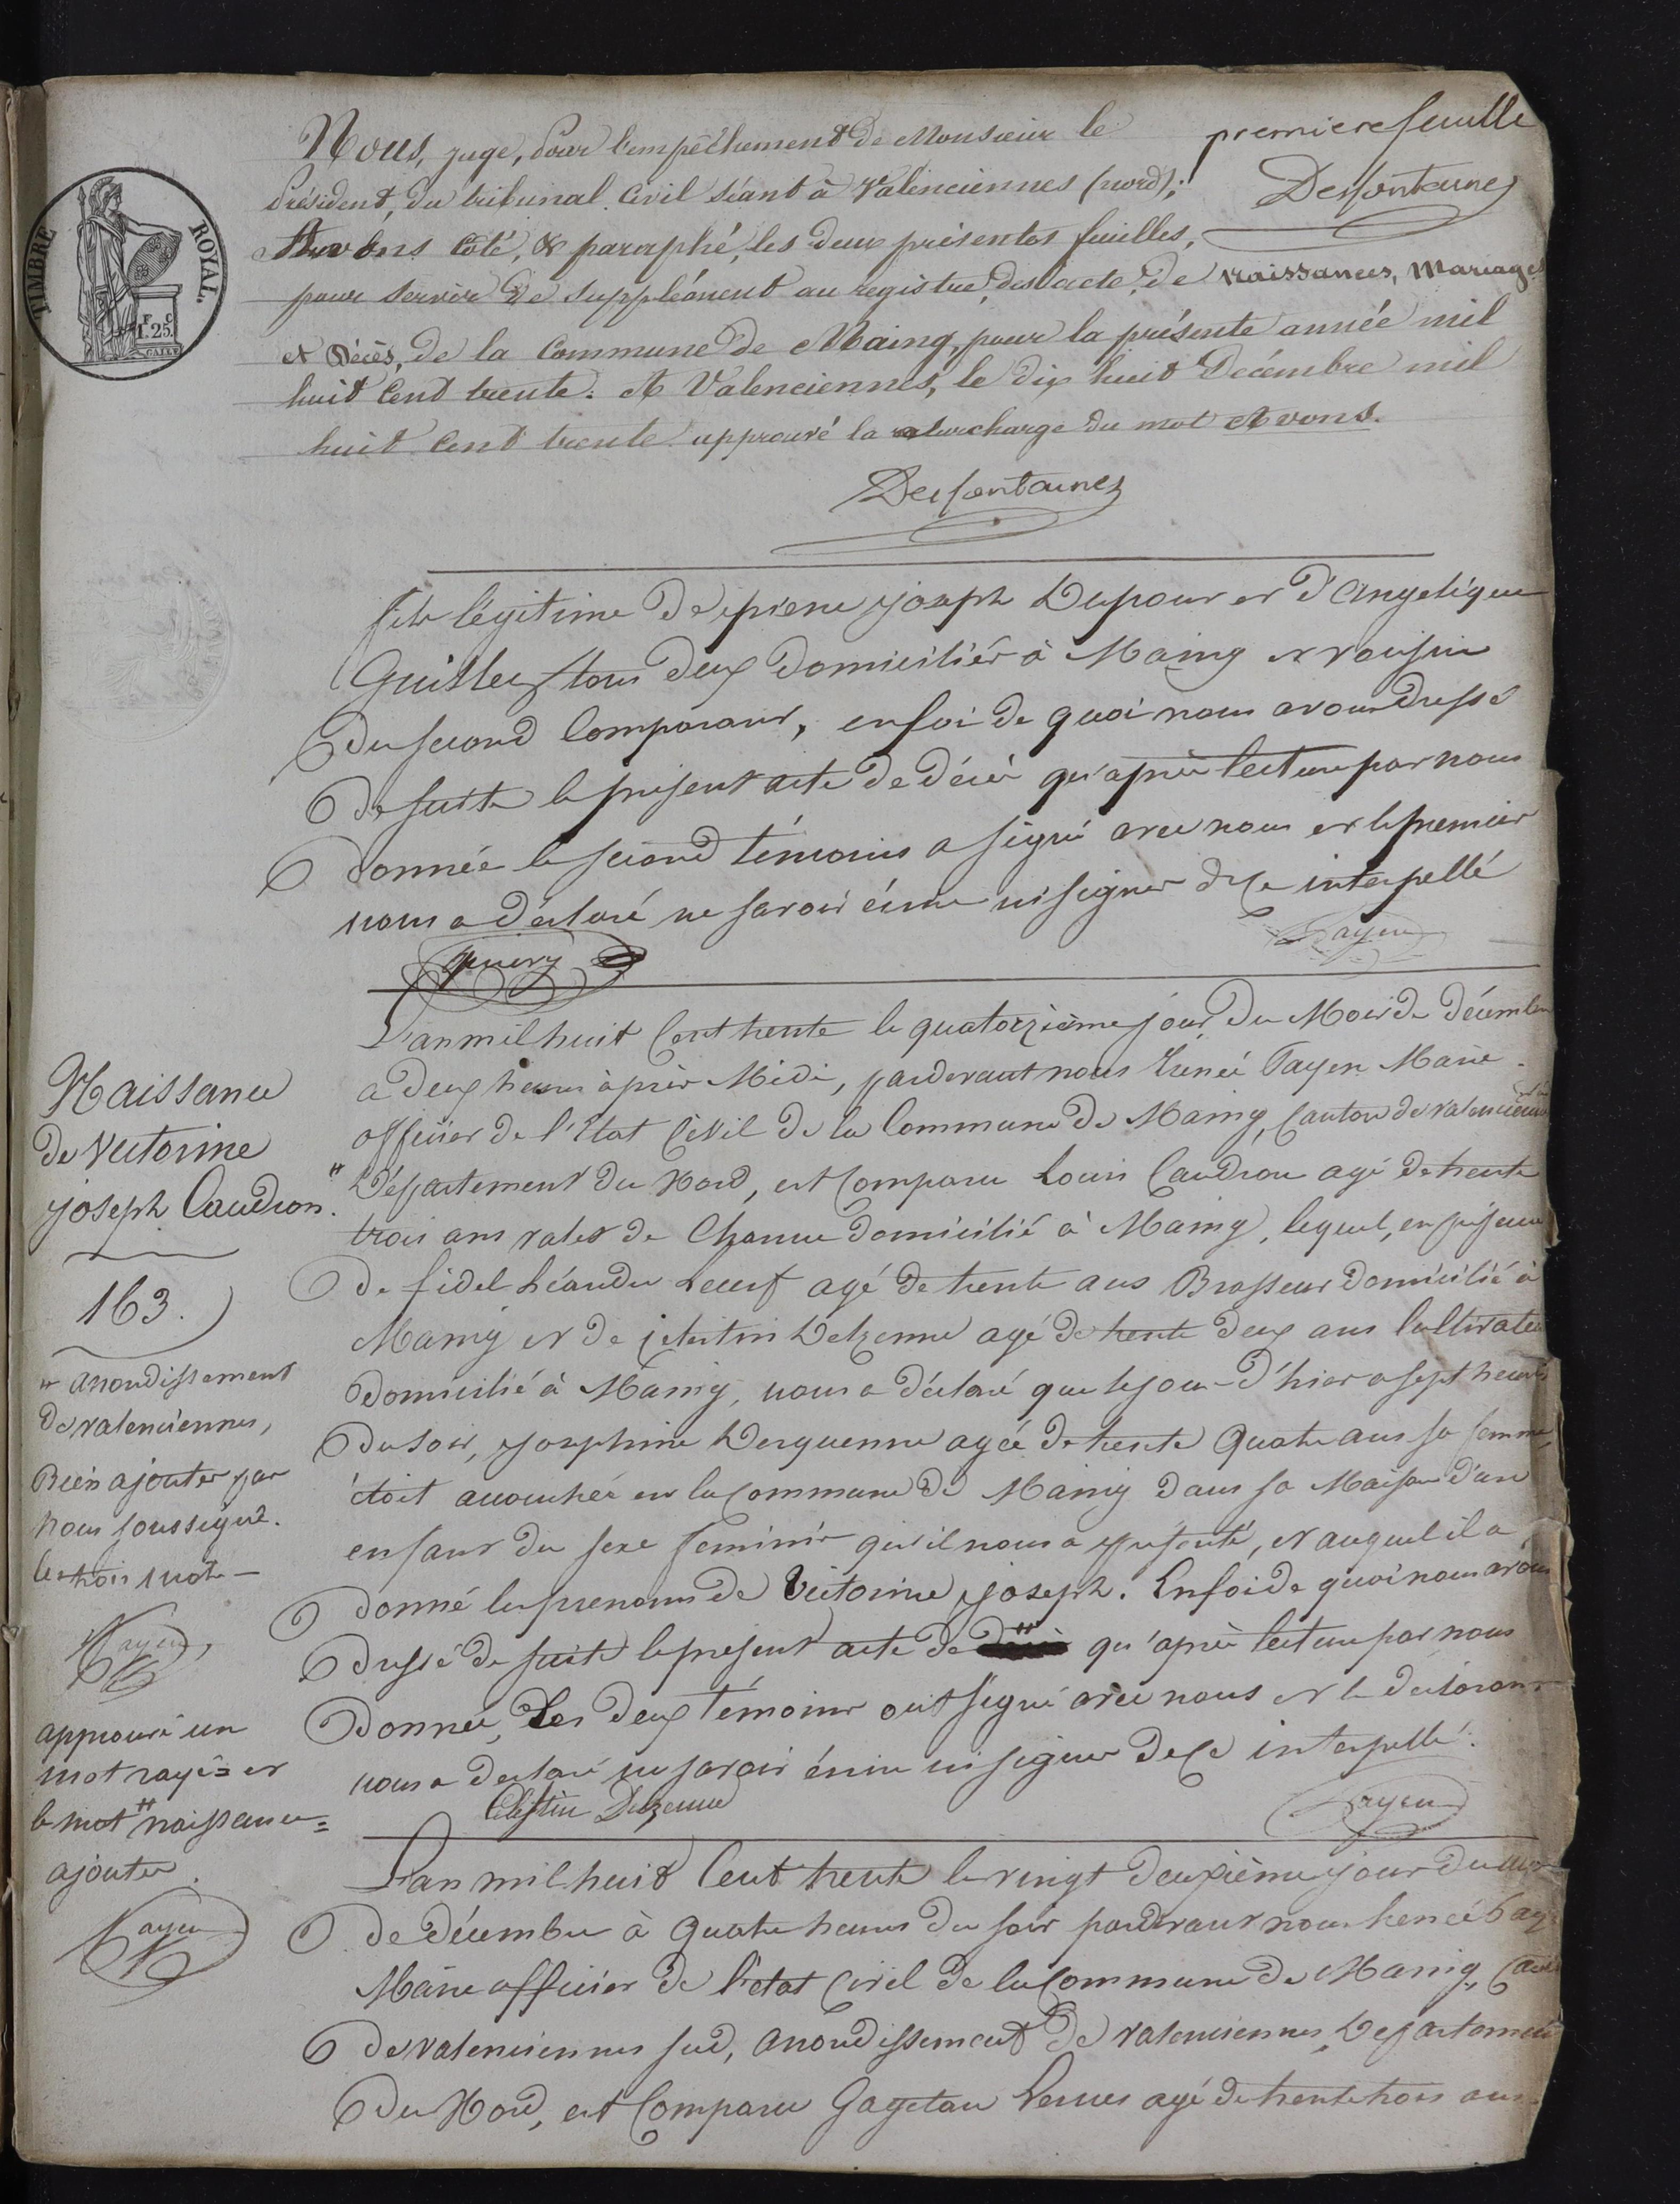 premiere feuille
Desfontaines
TIMBRE ROYAL.
F C
1.25
Nous, juge, pour l'empêchement de Monsieur le
Président, du tribunal Civil séant à Valenciennes (nord);
Avons Coté, & paraphé, les deux présentes feuilles,
pour servir de supplément au registre, des acte, de Naissances, Mariages
et Décès, de la Commune de Maing, pour la présente année mil
huit Cent trente. A Valenciennes, le dix huit Décembre mil
huit Cent trente. approuvé la surcharge du mot Avons.
Desfontaines
fils légitime de pierre joseph Dupour et d'Angelique
tous deux domiciliés à Maing et
du second Comparant, en foi de quoi nous avons dressé
de suite le présent acte de décès qu'après lecture par nous
donnée le second témoins a signé avec nous et le premier
nous a déclaré ne savoir écrire ni signer de ce interpellé
Payen
L'an mil huit Cent trente le quatorzième jour du Mois de décembre
a deux heures après Midi, pardevant nous Payen Maire
officier de l'Etat Civil de la Commune de Maing, Canton de Valenciennes
" Département du Nord, est Comparu Louis Caudron agé de trente
trois ans valet de Charrue domicilié à Maing, lequel, en présence
de fidel Léandre Lecerf agé de trente ans Brasseur domicilié à
Maing et de Célestin Delzenne agé de trente deux ans Cultivateur
domicilié à Maing, nous a déclaré que le jour d'hier a sept heures
du soir, Josephine Derquenne agée de trente quatre ans sa femme,
étoit accouchée en la Commune de Maing dans sa Maison d'un
enfant du sexe feminin qu'il nous a présenté, et auquel il a
donné les prenoms de Victorine joseph. En foi de quoi nous avons
dressé de suite le présent acte de qu'après lecture par nous
donnée, Les deux témoins ont signé avec nous et le declarant
nous a declaré ne savoir écrire ni signer de ce interpellé.
Célestin Delzenne
Payen
L'an mil huit Cent trente le vingt deuxième jour du mois
de décembre à quatre heures du soir pardevant nous
Maire officier de l'état Civil de la Commune de Maing,
de Valenciennes sud, arrondissement de Valenciennes, Departement
du Nord, est Comparu agé de trente trois ans
Naissance
de Victorine
joseph Caudron.
163.
" arrondissement
de valenciennes,
Bien ajouter par
nous soussigné.
les trois mots
Payen
approuvé un
mot rayé = et
le mot # naissance =
ajouter.
Payen